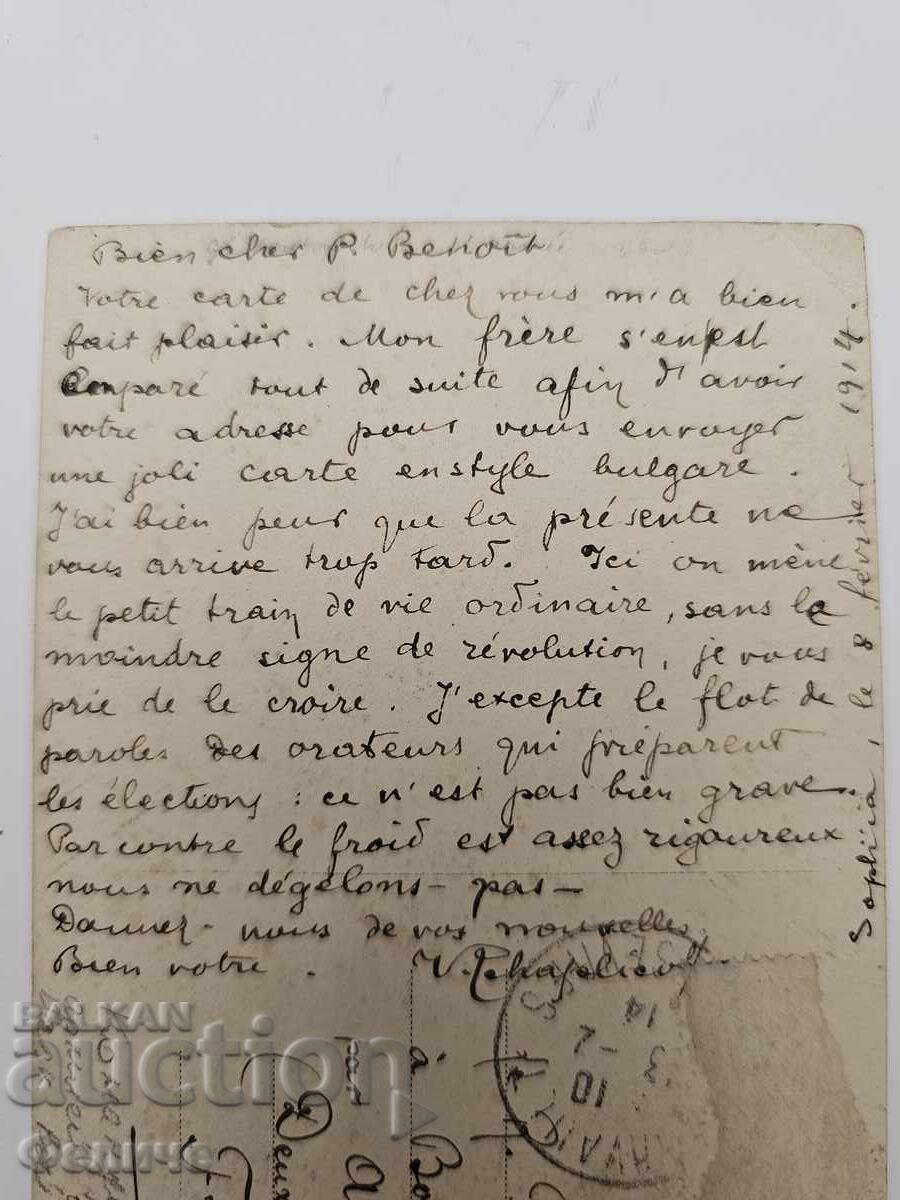 Bien cher P. Benoît
Votre carte de chez vous m'a bien
fait plaisir. Mon frère s'en est
emparé tout de suite afin d'avoir
votre adresse pour vous envoyer
une joli carte en style bulgare.
J'ai bien peur que la présente ne
vous arrive trop tard. Ici on mène
le petit train de vie ordinaire, sans le
moindre signe de révolution, je vous
prie de le croire. J'excepte le flot de
paroles des orateurs qui préparent
les élections : ce n'est pas bien grave.
Par contre le froid est assez rigoureux
nous ne dégelons - pas -
Donnez - nous de vos nouvelles
Bien votre.
Sophia, le 8 février 1914.
par
à
Deux
Bo
14
3
-2
10
BALKAN
auction
Фениче